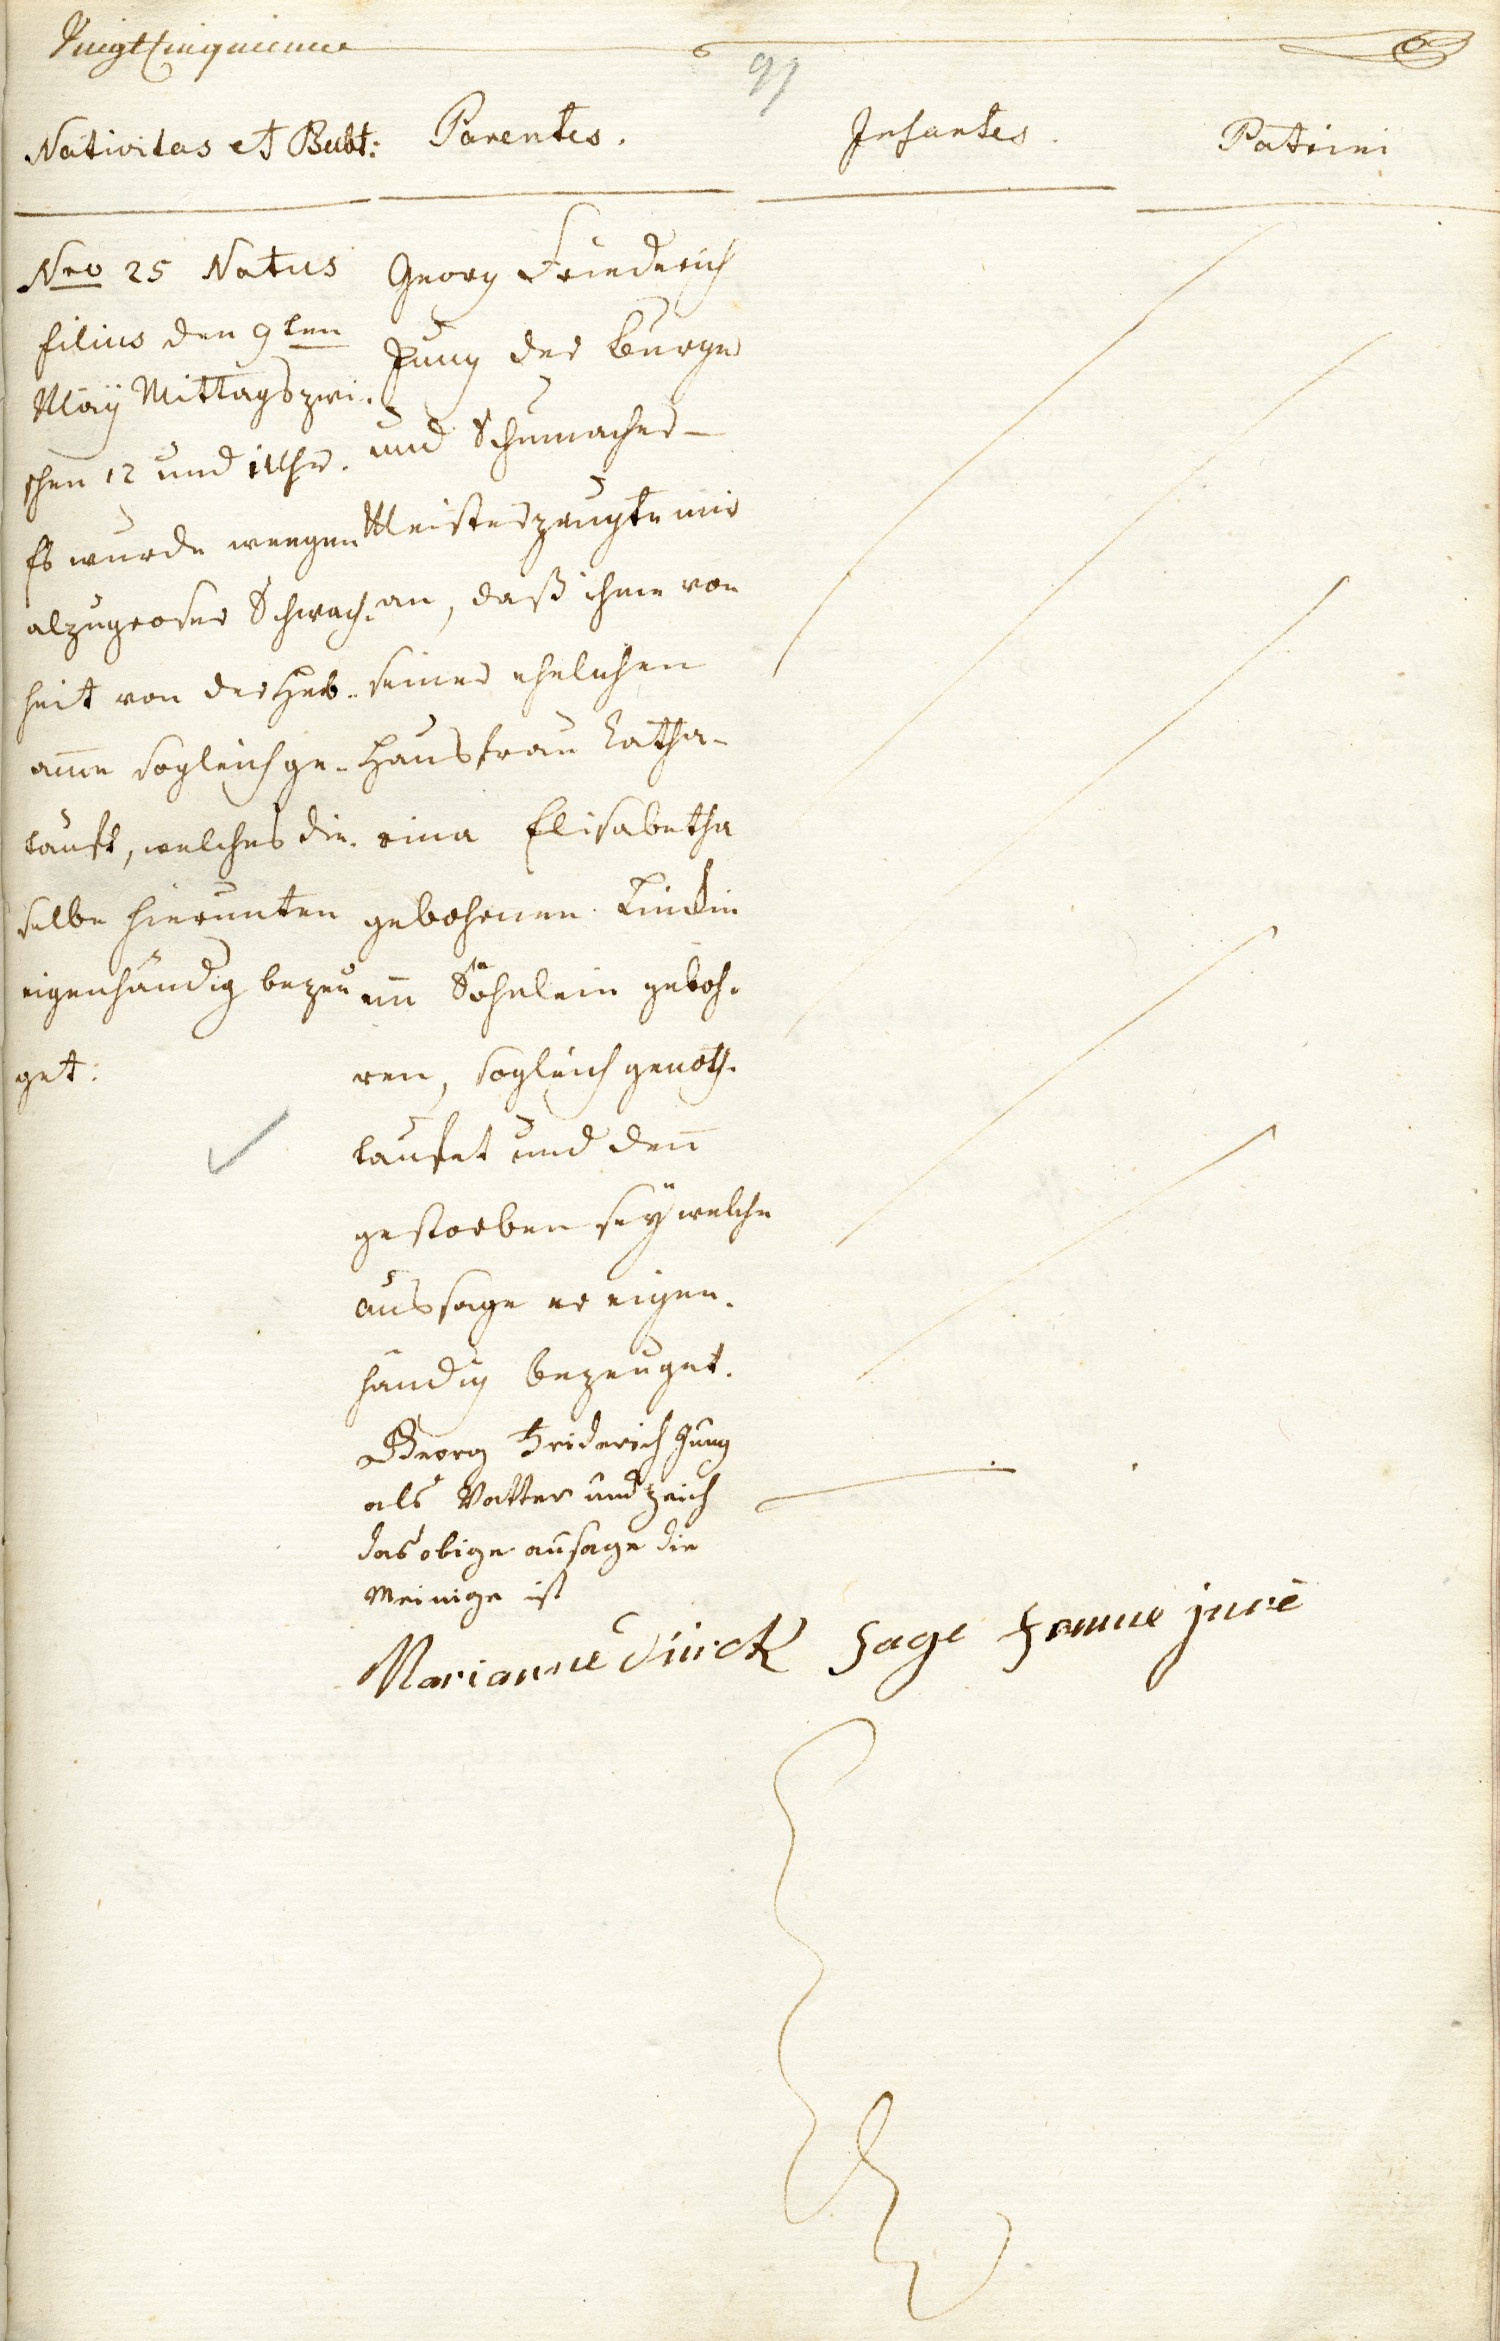 Vingt Cinquieme
91
Nativitas et Babt: Parentes. Infantes. Patrini
Nro 25 Natus
filius den 9ten
Maÿ Mittags zwi-
schen 12 und 1 Uhr.
Es wurde weegen
alzugroser Schwach-
heit von der Heb-
am̄e sogleich ge-
tauft, welches die-
selbe hierunten
eigenhändig bezeu
get:
Georg Friederich
Jung der burger
und Schumacher-
Meister zeugte mir
an, daß ihme von
seiner ehelichen
Hausfrau Catha-
rina Elisabetha
gebohrnen
ein Söhnlein geboh-
ren, sogleich genoth-
taufet und den̄
gestorben seÿ welche
aussage er eigen-
händig bezeuget.
Georg Friderich Jung
als Vatter und
das obige ausage die
Meinige ist
Marianne sage femme juré